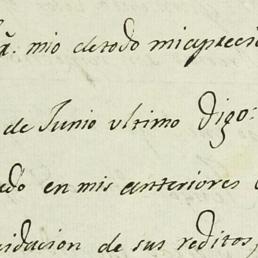 mio de todo mi apreci
de Junio ultimo Digo:
en mis anteriores
idacion de sus reditos,